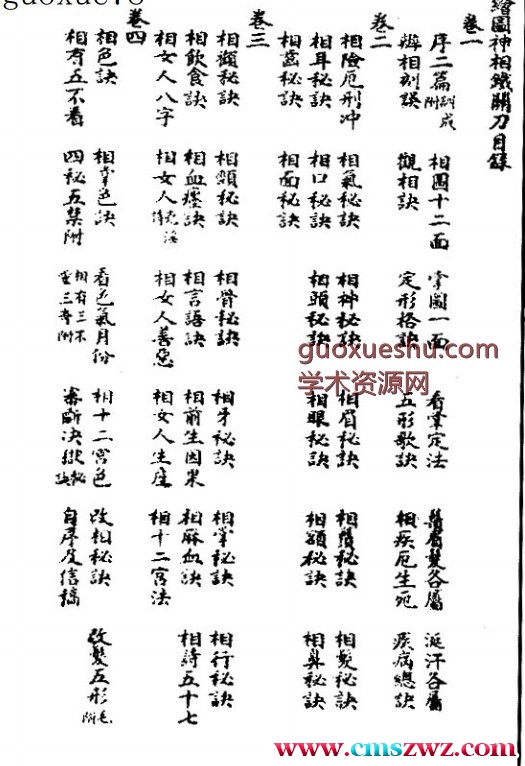 guoxue78
繪圖神相鐵關刀目錄
卷一
序二篇訓戒附 相圖十二面 掌圖一面 看掌定法 鬚眉髮各屬 涎汗各屬
辨相刻誤 觀相訣 定形格訣 五形歌訣 相疾厄生死 疾病總訣
卷二
相險厄刑冲 相氣秘訣 相神秘訣 相眉秘訣 相鬚秘訣 相髮秘訣
相耳秘訣 相口秘訣 相頭秘訣 相眼秘訣 相額秘訣 相鼻秘訣
相齒秘訣 相面秘訣
卷三
相顴秘訣 相頸秘訣 相骨秘訣 相牙秘訣 相掌秘訣 相行秘訣
相飲食訣 相血痣訣 相言語訣 相前生因果 相麻血訣 相詩五十七
相女人八字 相女人 相女人善惡 相女人生產 相十二宮法
卷四
相色訣 相掌色訣 看色氣月份 相十二宮色 改相秘訣 改髮五形
相有五不看 四秘五禁附 相有三不靈三奇附 審斷決獄秘訣 自序及信稿
guoxueshu.com
学术资源网
www.cmszwz.com